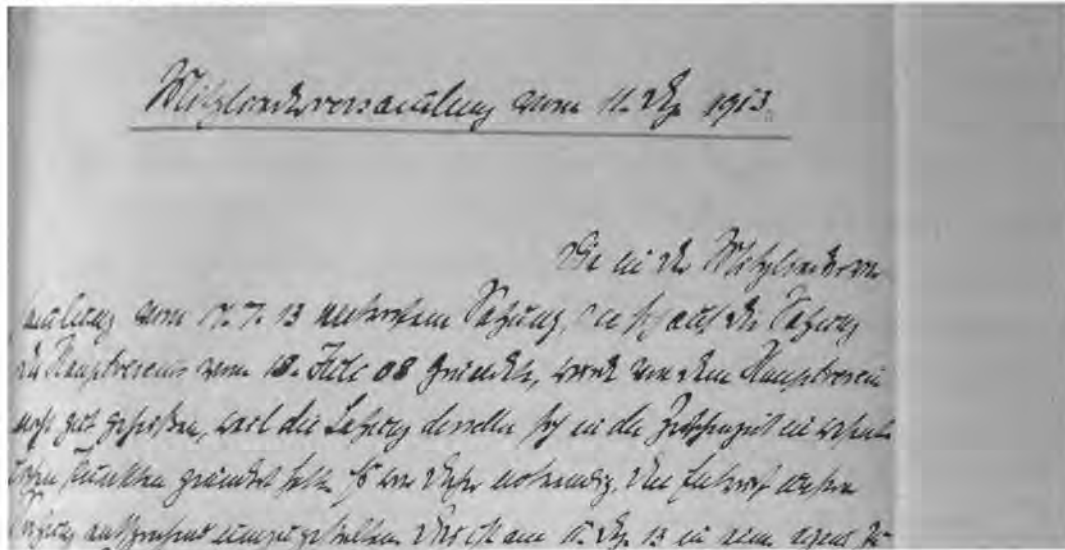 Mitgliederversammlung vom 11. Dez. 1913.
Die in der Mitgliederver
sammlung vom 17. 7. 13 Satzung, die sich auf die Satzung
des Hauptvereins vom 18. Juli 08 gründete, wurde von dem Hauptverein
nicht gut geheißen, weil die Satzung desselben sich in der Zwischenzeit in wesent
lichen Punkten geändert hatte. Es war daher notwendig, den Entwurf
Satzung entsprechend umzugestalten. Dies ist am 13 in einer